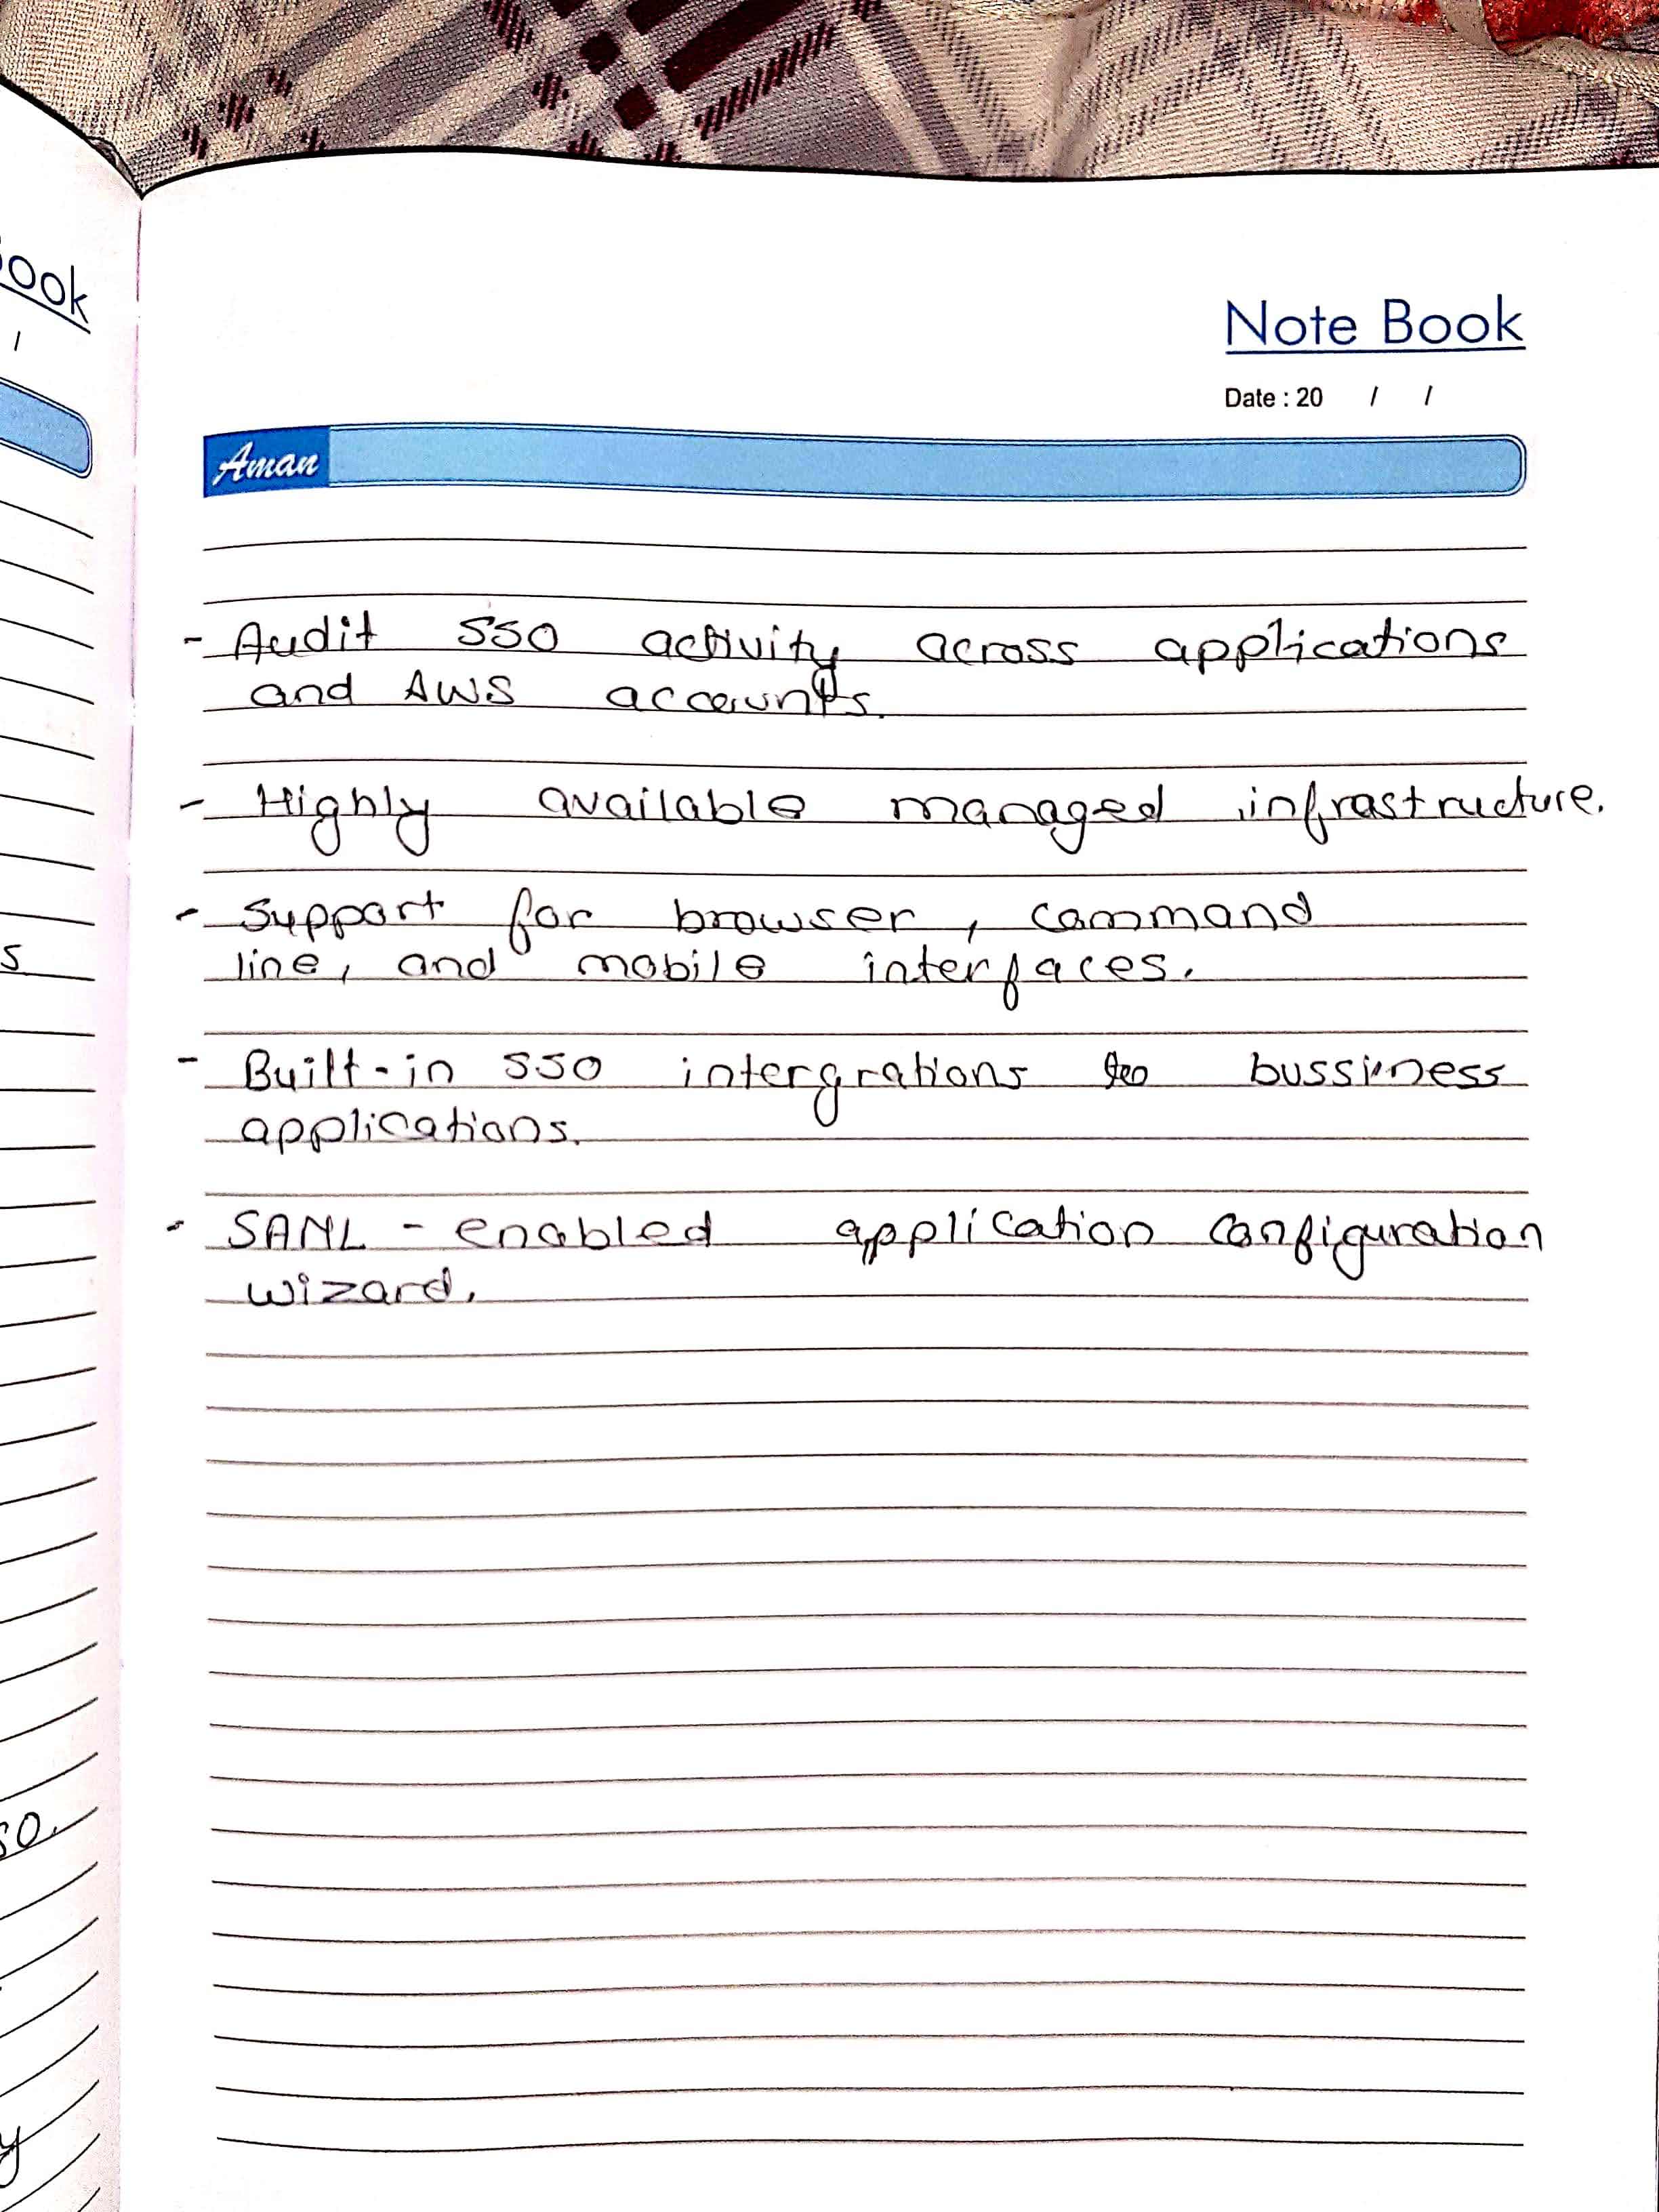 ook
/
Note Book
Date : 20 / /
Aman
- Audit SSO activity across applications
and AWS accounts.
- Highly available managed infrastructure.
- Support for browser, command
line, and mobile interfaces.
- Built-in SSO intergrations to bussiness
applications.
- SAML - enabled application configuration
wizard.
s
so.
y